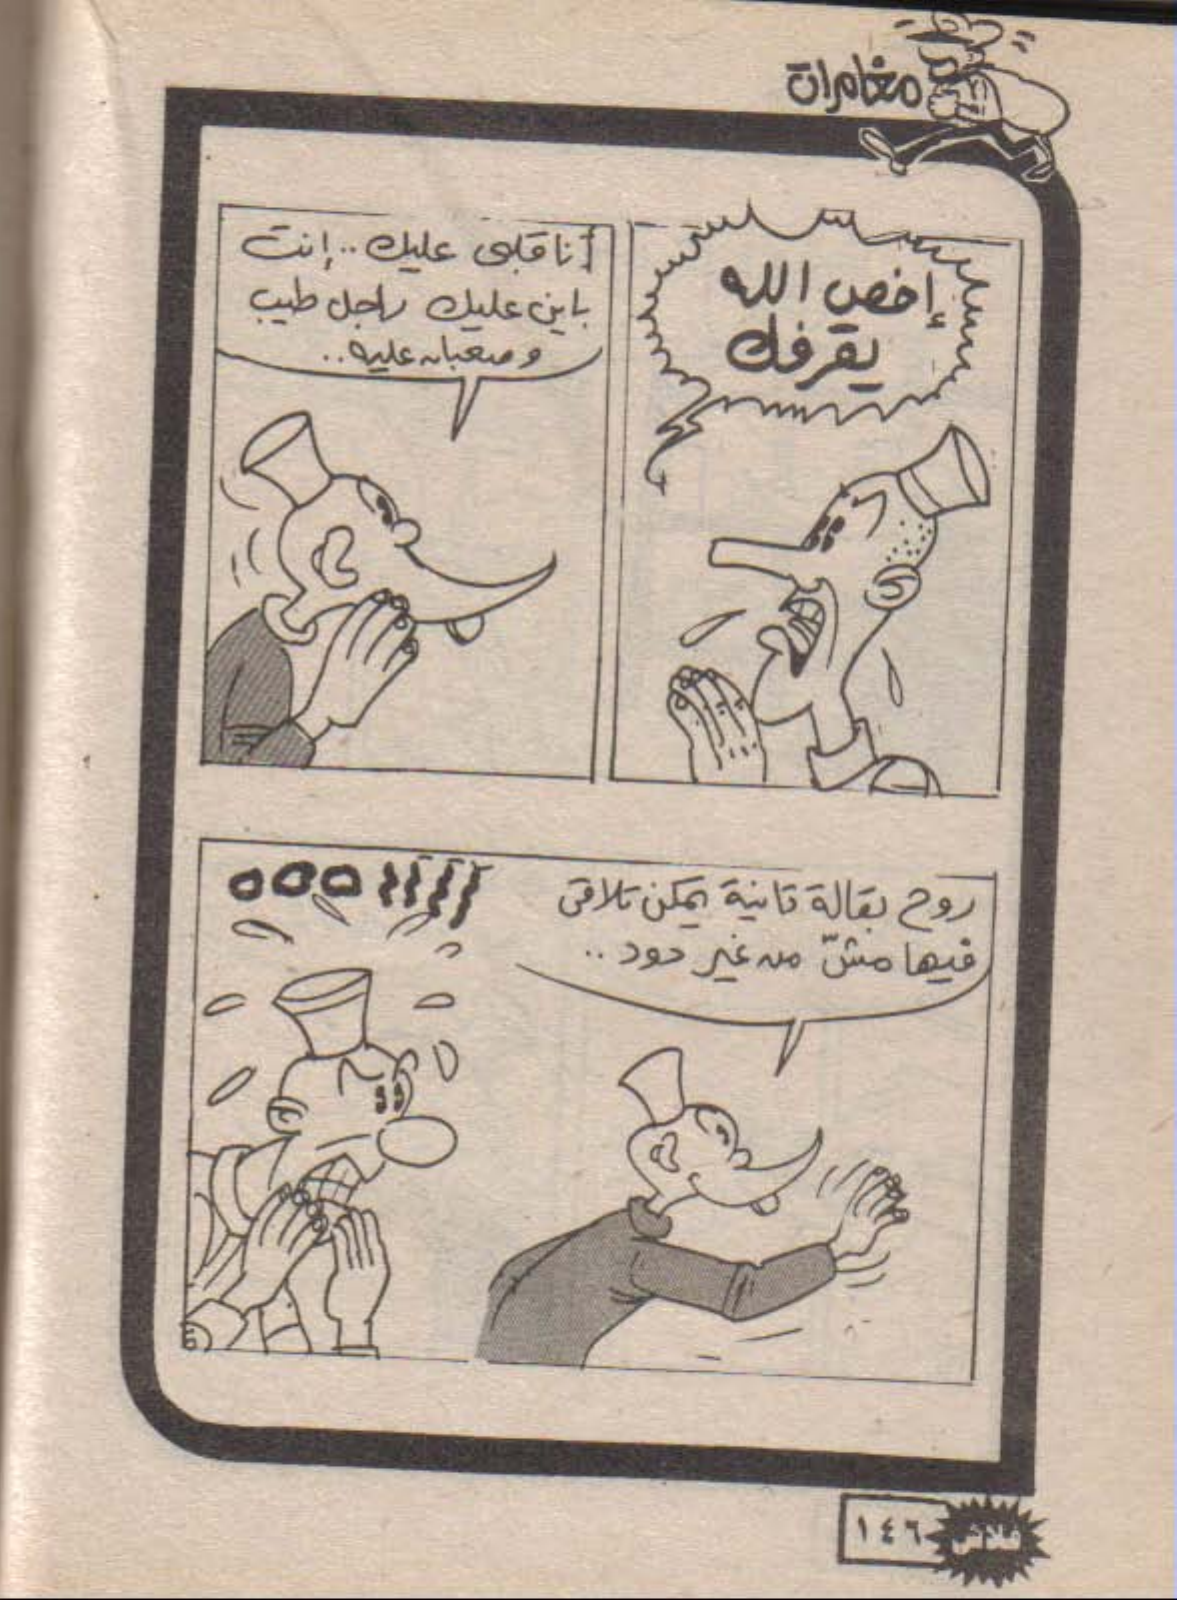 مغامرات
إخص الله
يقرفك
أنا قلبي عليك.. إنت
باين عليك راجل طيب
وصعبان عليه..
روح بقالة تانية يمكن تلاقى
فيها مشّ من غير دود..
١٤٦
فلاش